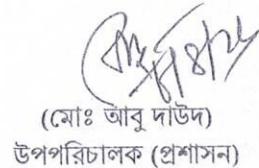 (মোঃ আবু দাউদ)
উপপরিচালক (প্রশাসন)